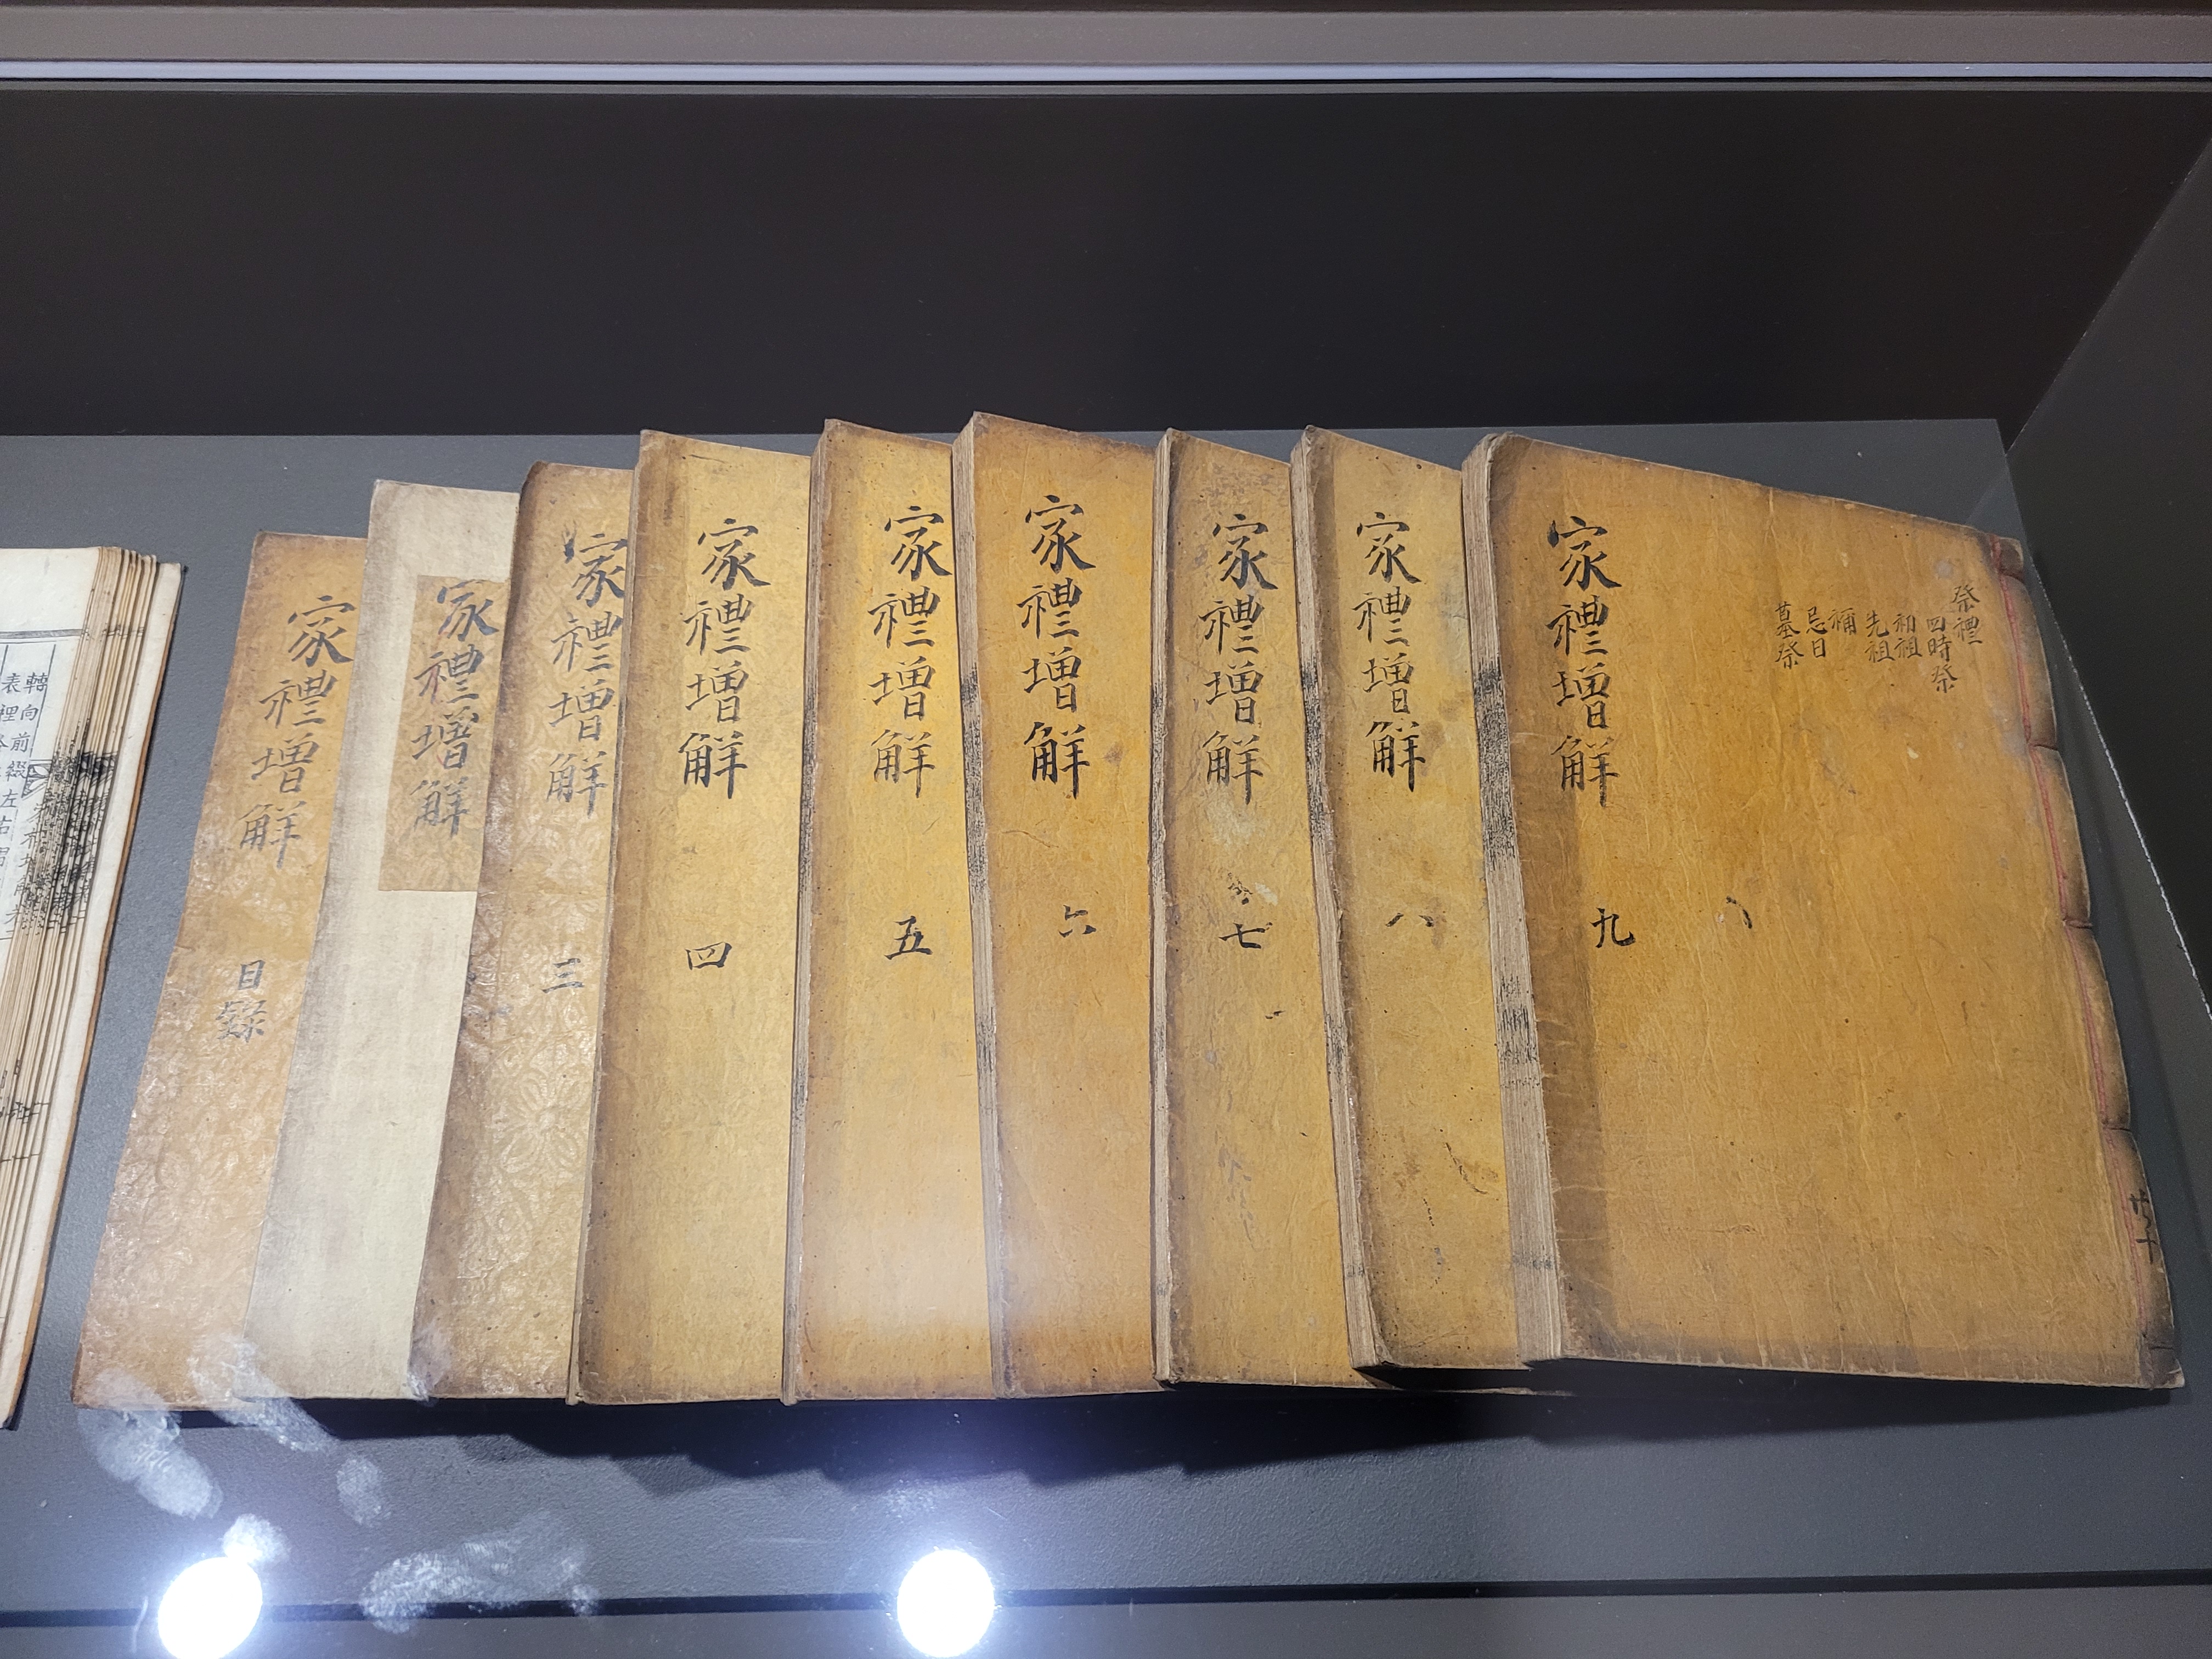 家禮增解
目錄
家禮增解
家禮增解
三
家禮增解
四
家禮增解
五
家禮增解
六
家禮增解
七
家禮增解
八
家禮增解
九
祭禮
四時祭
初祖
先祖
禰
忌日
墓祭
轉向前綴左
表裡各